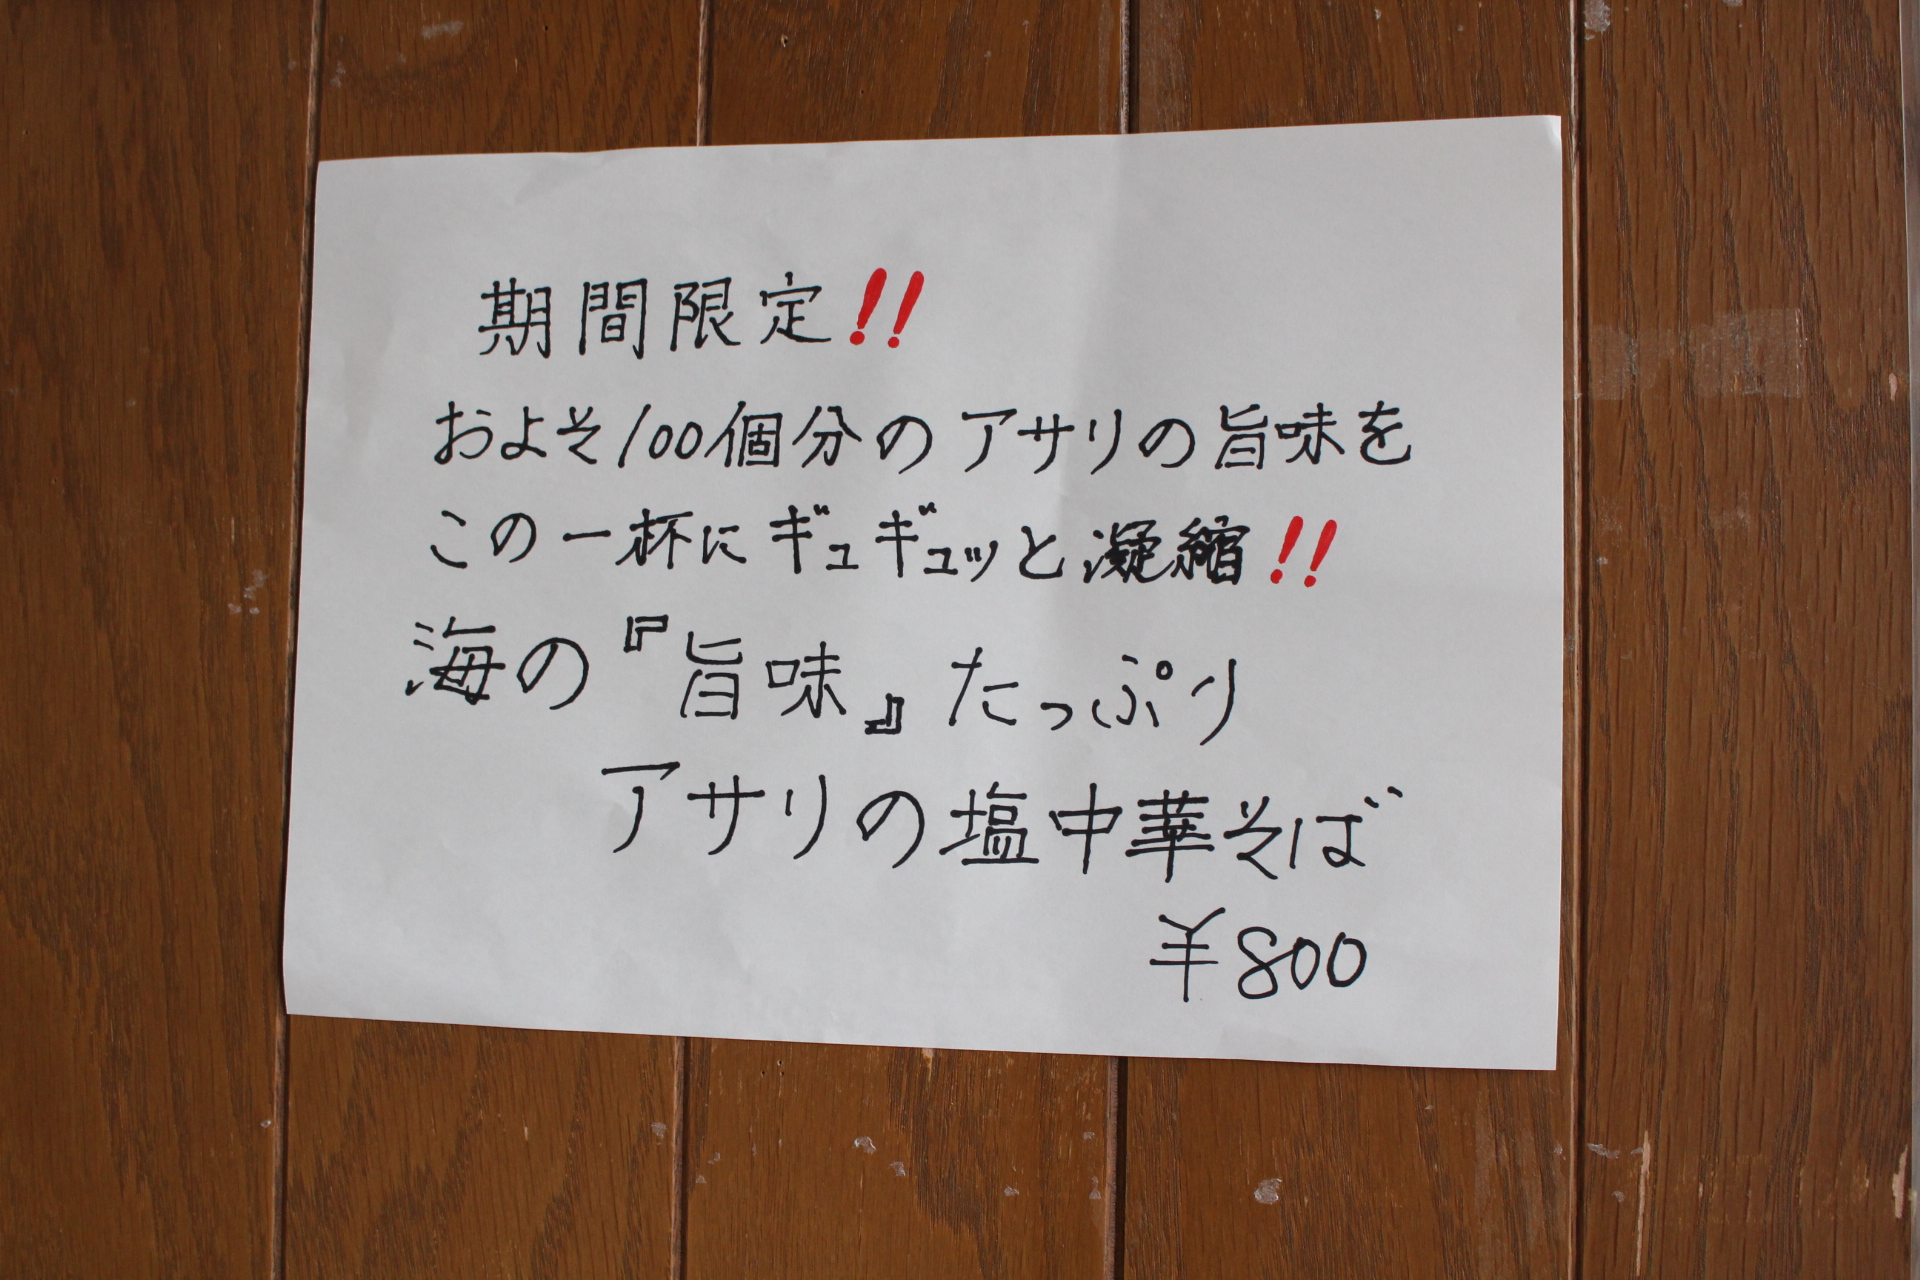 期間限定!!
およそ100個分のアサリの旨味を
この一杯にギュギュッと凝縮!!
海の『旨味』たっぷり
アサリの塩中華そば
¥800